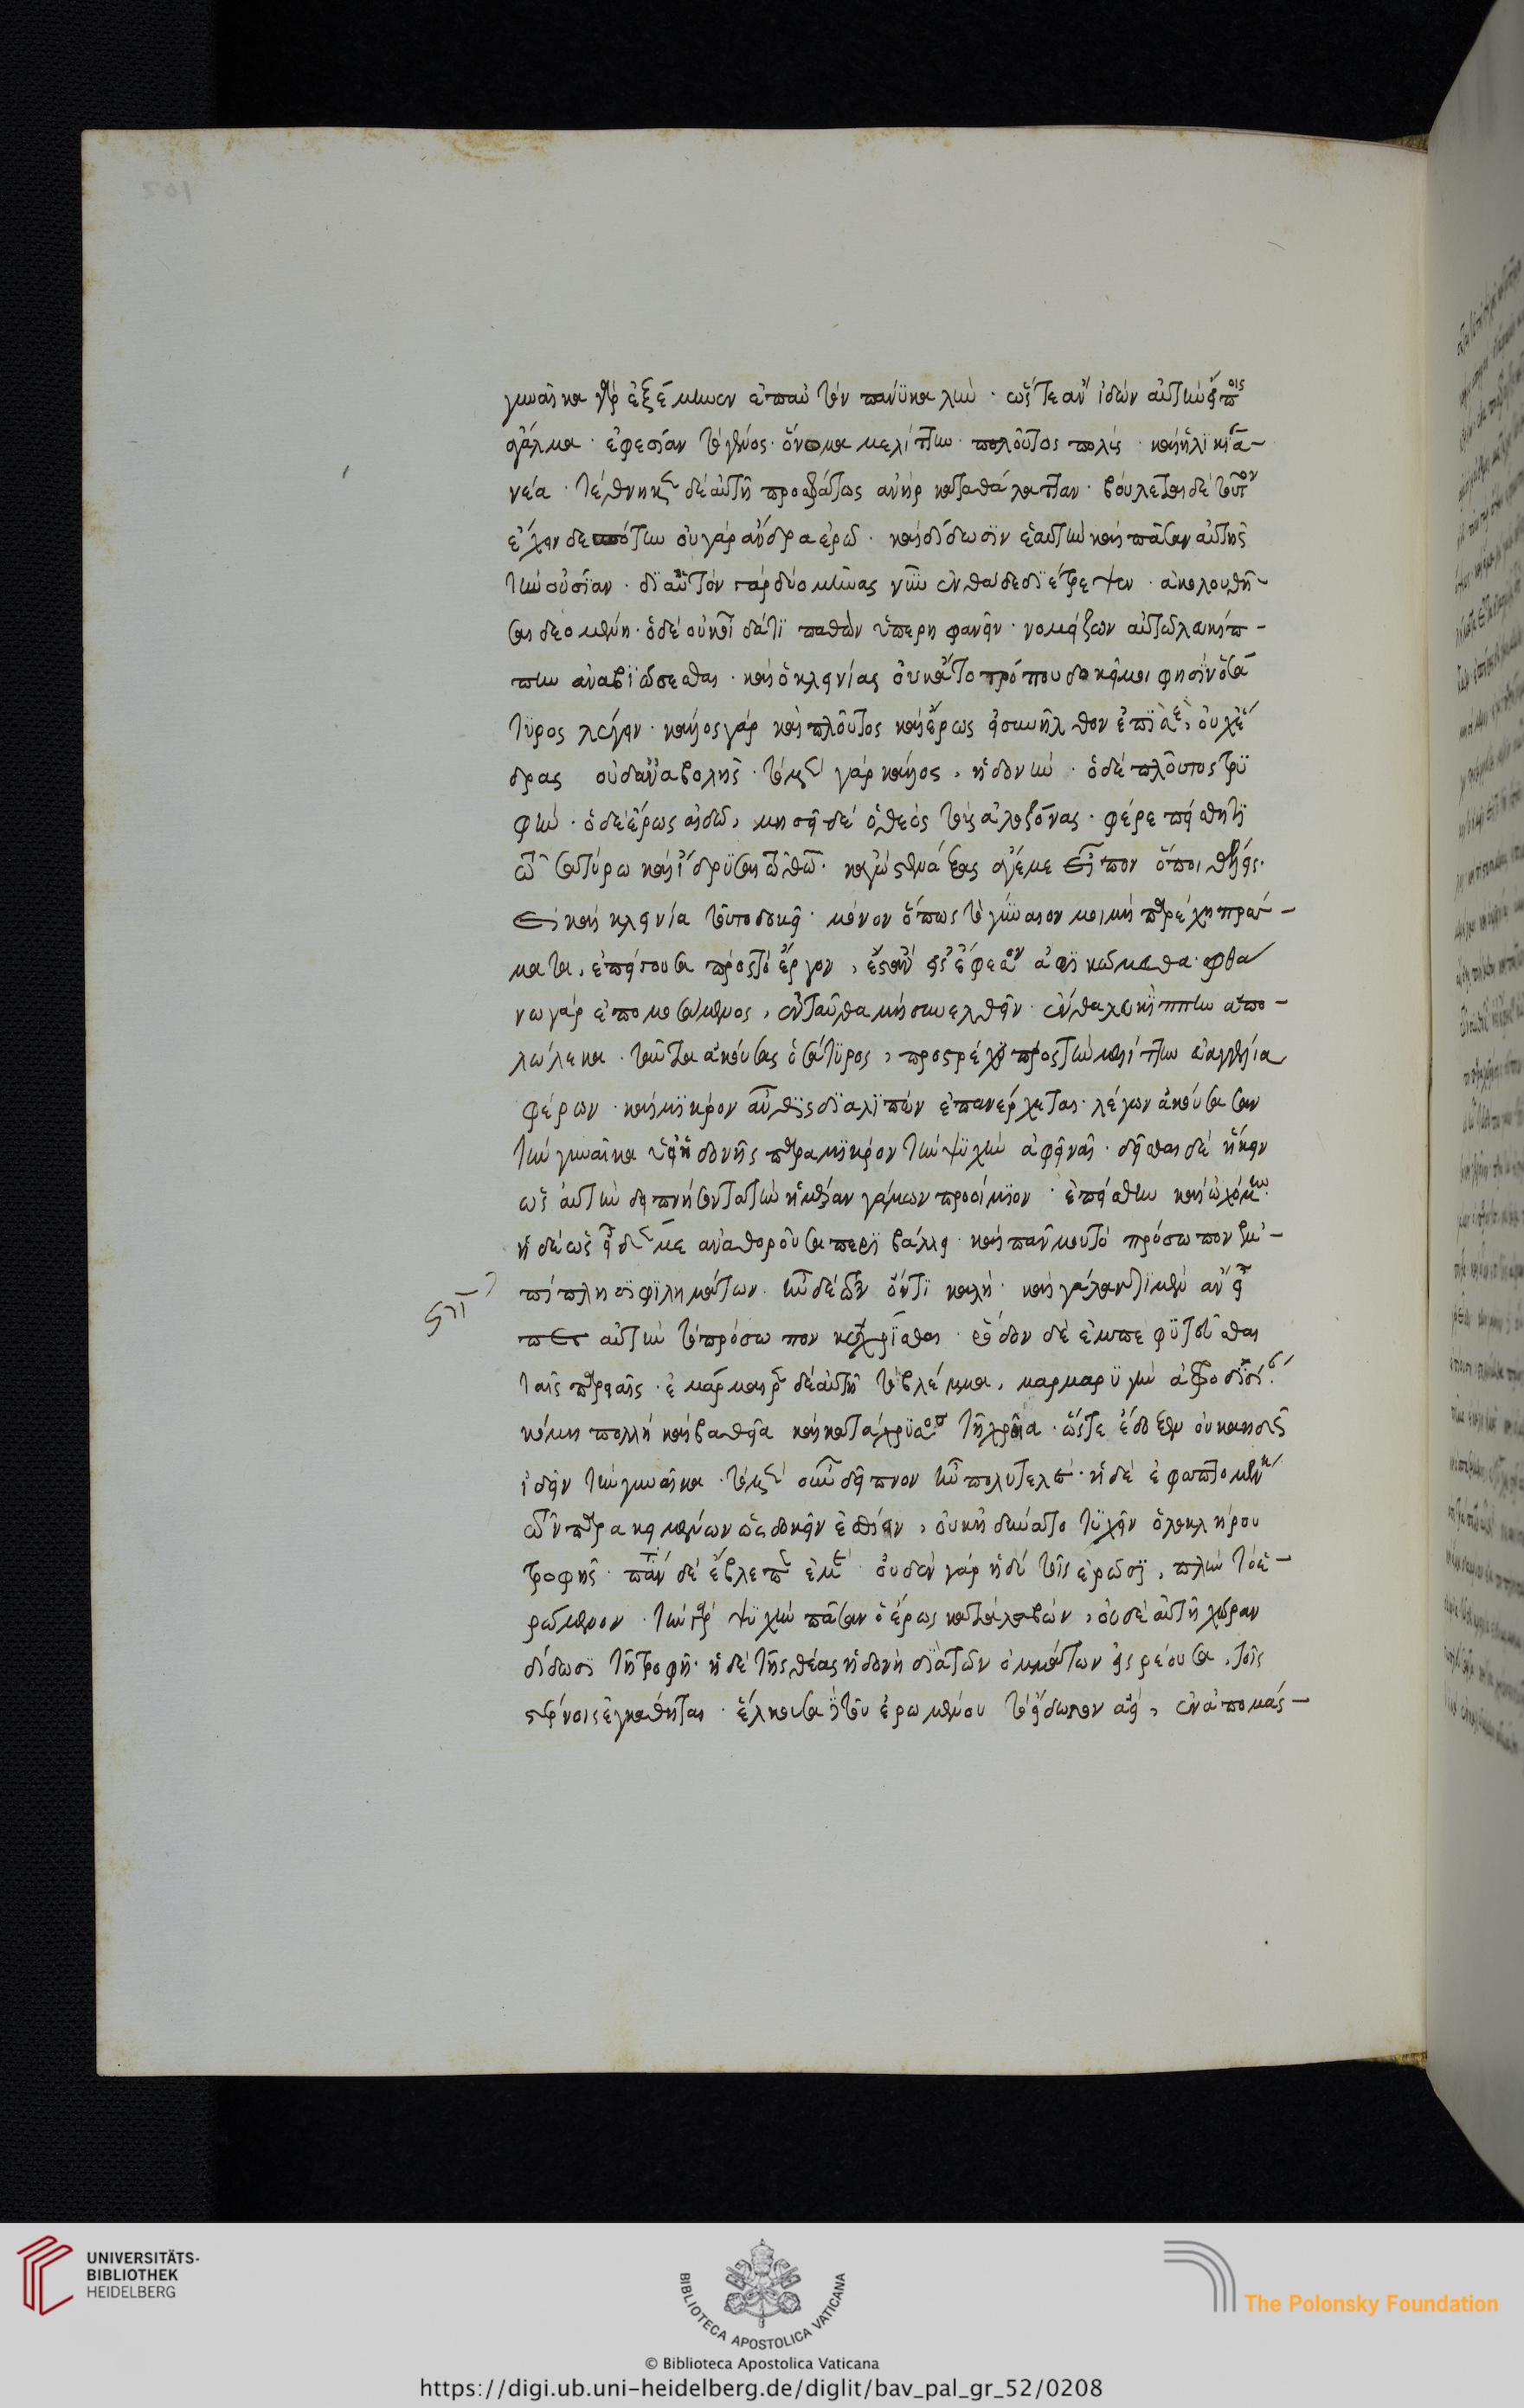 γυναῖκα γὰρ ἐξέμηνεν ἐνταῦθα πάνυ καλήν· ὥστε ἂν ἰδὼν αὐτὴν εἴποις
ἄγαλμα· ἐφεσίαν τὸ γένος· ὄνομα μελίττην· πλοῦτος πολύς· καὶ ἡλικία
νέα· τέθνηκε δὲ αὐτῆ προσφάτως ἀνὴρ κατὰ θάλατταν· βούλεται δὲ τοῦτον
ἔχειν δεσπότην οὐ γὰρ ἄνδρα ἐρῶ· καὶ δίδωσιν ἑαυτὴν καὶ πᾶσαν αὐτῆς
τὴν οὐσίαν· δι' αὐτὸν γὰρ δύο μῆνας νῦν ἐνθάδε διέτριψεν· ἀκολουθῆ-
σαι δεομένη· ὁ δὲ οὐκ οἶδα τί παθὼν ὑπερηφανεῖ· νομίζων αὐτῶ λευκίπ-
πην ἀναβιώσεσθαι· καὶ ὁ κλεινίας οὐκ ἄπο τρόπου δοκεῖ μοι φησὶν ὁ σά
τυρος λέγειν· κάλλος γὰρ καὶ πλοῦτος καὶ ἔρως εἰ συνῆλθον ἐπὶ σὲ, οὐχ ἕ
δρας οὐδ' ἀναβολῆς· τὸ μὲν γὰρ κάλλος, ἡδονὴν· ὁ δὲ πλοῦτος τρυ
φὴν· ὁ δὲ ἔρως αἰδῶ, μισεῖ δὲ ὁ θεὸς τοὺς ἀλαζόνας· φέρε πείσθητι
τῶ σατύρω καὶ χάρισαι τῶ θεῶ· κἀγὼ στενάξας ἄγε με εἶπον ὅποι θέλεις·
εἰ καὶ κλεινία τοῦτο δοκεῖ· μόνον ὅπως τὸ γύναιον μοι μὴ παρέχη πράγ-
ματα, ἐπείγουσα πρὸς τὸ ἔργον, ἔστ' ἂν εἰς ἔφεσον ἀφικώμεθα· φθά
νω γὰρ ἐπομοσάμενος, ἐνταῦθα μὴ συνελθεῖν· ἔνθα λευκίππην ἀπο-
λώλεκα· ταῦτα ἀκούσας ὁ σάτυρος, προστρέχει πρὸς τὴν μελίττην εὐαγγέλια
φέρων· καὶ μικρὸν αὖθις διαλιπὼν ἐπανέρχεται· λέγων ἀκούσασαν
τὴν γυναῖκα ὑφ' ἡδονῆς παρὰ μικρὸν τὴν ψυχὴν ἀφεῖναι· δεῖσθαι δὲ ἥκειν
ὡς αὐτὴν δειπνήσοντα τὴν ἡμέραν γάμων προοίμιον· ἐπείσθην καὶ ᾠχόμην·
ἡ δὲ ὡς εἶδέ με ἀναθοροῦσα περιβάλλει· καὶ πᾶν μου τὸ πρόσωπον ἐμ-
πίπλησι φιλημάτων· ἦν δὲ τῶ ὄντι καλὴ· καὶ γάλακτι μὲν ἂν εἶ
πες αὐτὴν τὸ πρόσωπον κεχρίσθαι· ῥόδον δὲ ἐμπεφυτεῦσθαι
ταῖς παρειαῖς· ἐμάρμαιρε δὲ αὐτῆ τὸ βλέμμα, μαρμαρυγὴν ἀφροδίσιον·
κόμη πολλὴ καὶ βαθεῖα καὶ κατάχρυσος τῆ χροιᾶ· ὥστε ἔδοξεν οὐκ ἀηδῶς
ἰδεῖν τὴν γυναῖκα· τὸ μὲν οὖν δεῖπνον ἦν πολυτελές· ἡ δὲ ἐφαπτομένη
τῶν παρακειμένων ὡς δοκεῖν ἐσθίειν, οὐκ ἠδύνατο τυχεῖν ὁλοκλήρου
τροφῆς· πάντα δὲ ἔβλεπέ με· οὐδὲν γὰρ ἡδὺ τοῖς ἐρῶσι, πλὴν τὸ ἐ-
ρώμενον· τὴν γὰρ ψυχὴν πᾶσαν ὁ ἔρως καταλαβὼν, οὐδὲ αὐτῆ χώραν
δίδωσι τῆ τροφῆ· ἡ δὲ τῆς θέας ἡδονὴ διὰ τῶν ὀμμάτων εἰσρέουσα, τοῖς
στέρνοις ἐγκάθηται· ἕλκουσα δὲ τοῦ ἐρωμένου τὸ εἴδωλον ἀεὶ, ἐναπομάσ-
UNIVERSITÄTS-
BIBLIOTHEK
HEIDELBERG
BIBLIOTECA APOSTOLICA VATICANA
The Polonsky Foundation
© Biblioteca Apostolica Vaticana
https://digi.ub.uni-heidelberg.de/diglit/bav_pal_gr_52/0208